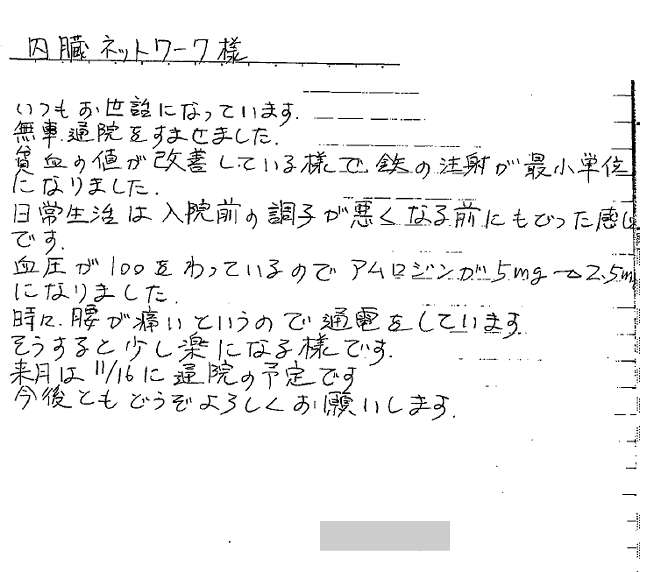 内臓ネットワーク様
いつもお世話になっています.
無事.通院をすませました.
貧血の値が改善している様で鉄の注射が最小単位
になりました.
日常生活は入院前の調子が悪くなる前にもどった感じ
です.
血圧が100をわっているのでアムロジンが5mg→2.5mg
になりました.
時々.腰が痛いというので通電をしています
そうすると少し楽になる様です.
来月は11/16に通院の予定です
今後ともどうぞよろしくお願いします.